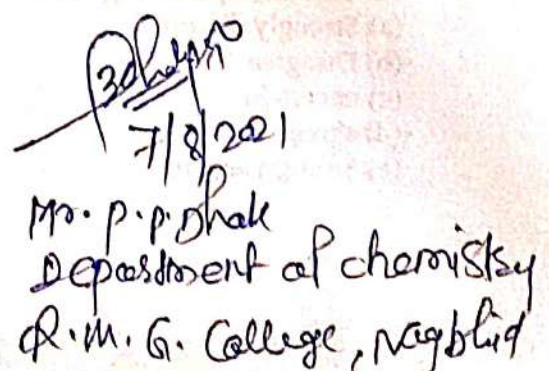 7/8/2021
Mr. P. P. Dhak
Department of chemistry
R. M. G. College, Nagbhid